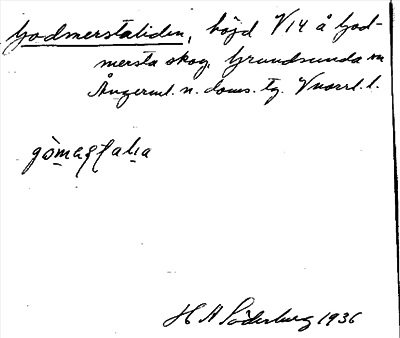 Godmerstaliden, höjd V14 å God-
mersta skog, Grundsunda sn
Ångerml. n. doms. tg. Vnorrl. l.
H A Söderberg 1936